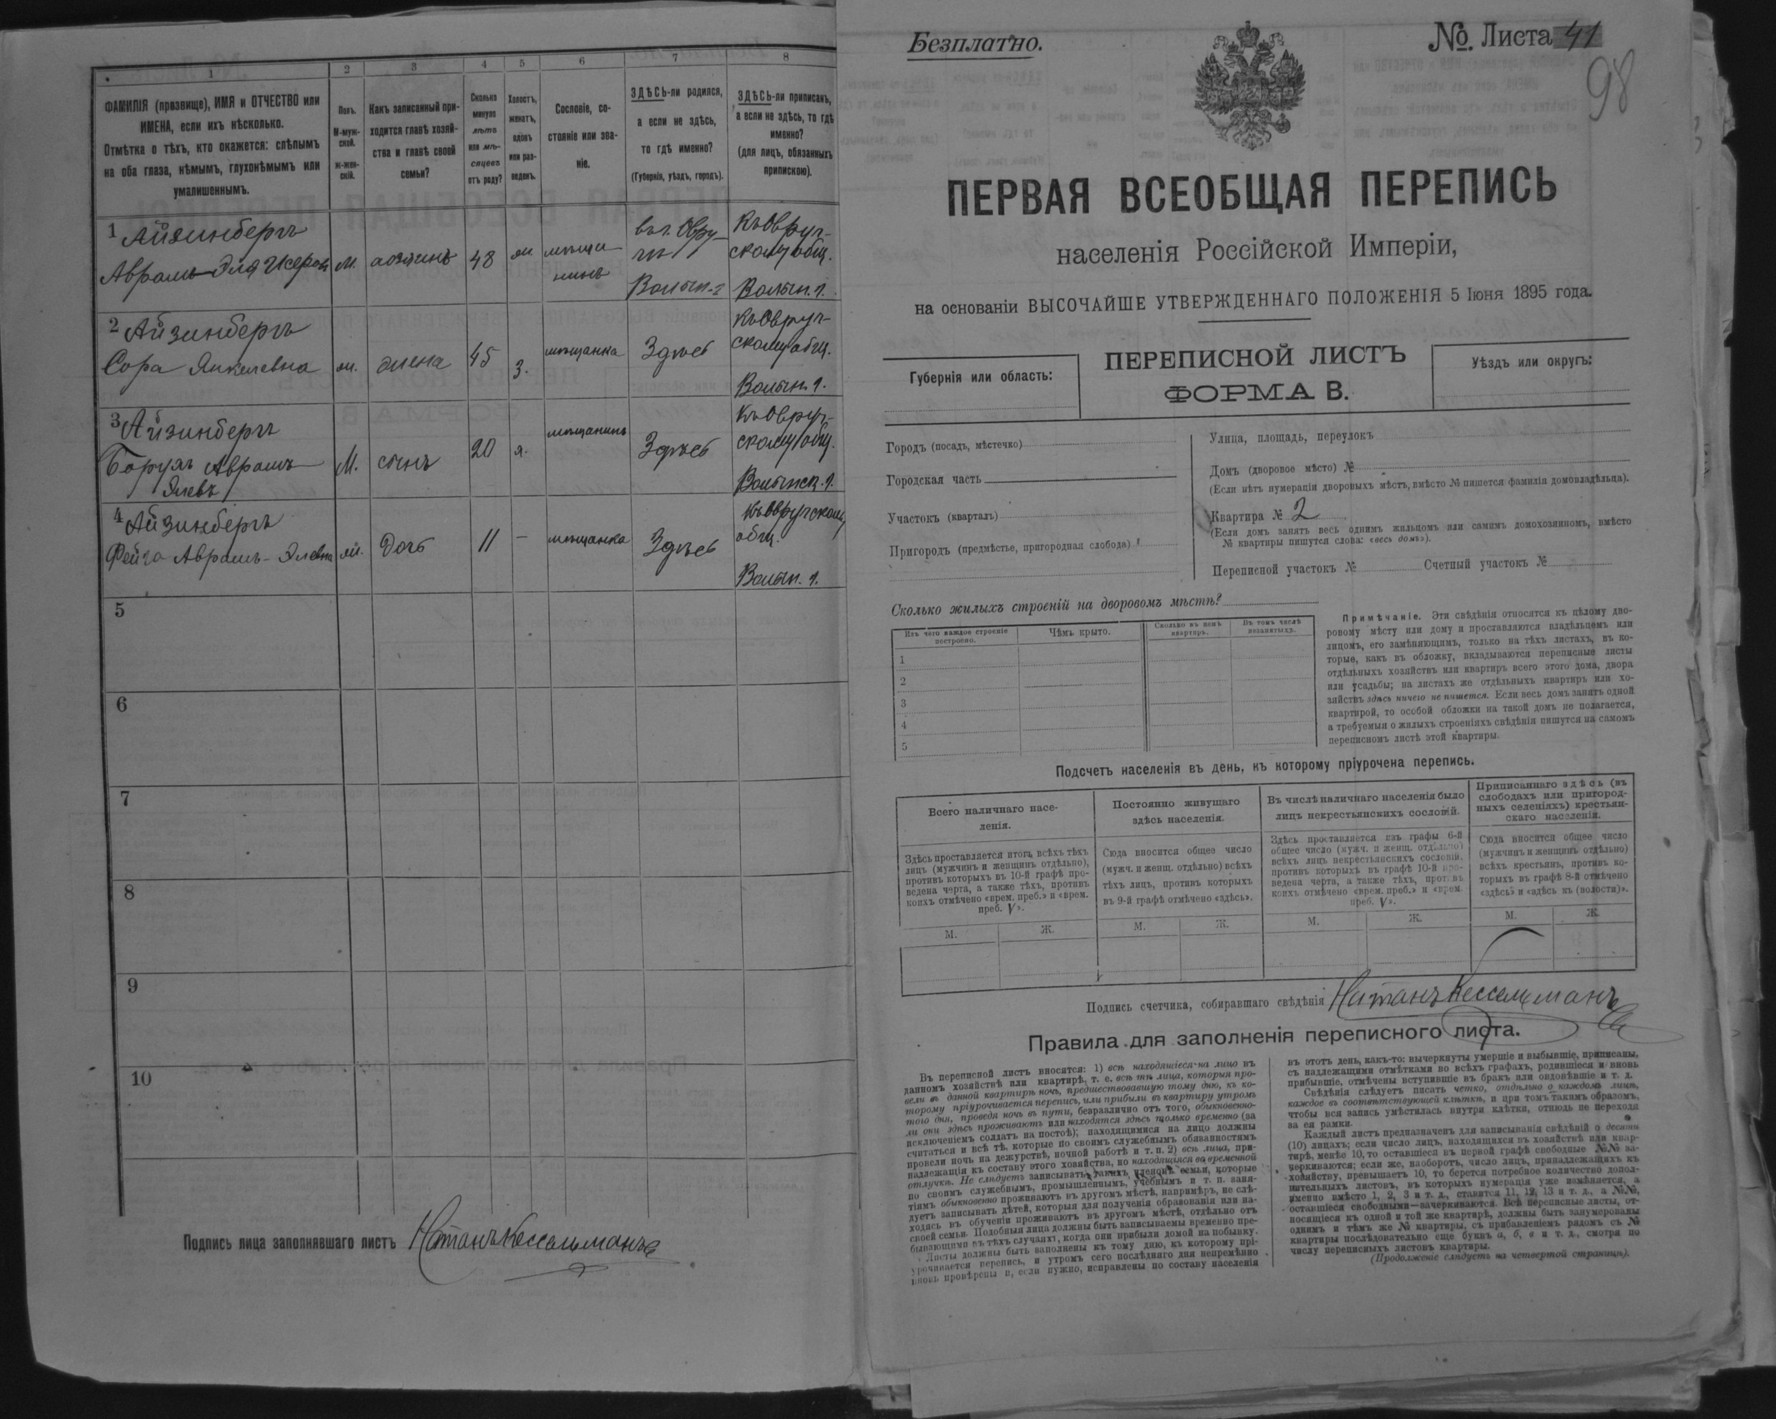 1 2 3 4 5 6 7 8
ФАМИЛІЯ (прозвище), ИМЯ и ОТЧЕСТВО или
ИМЕНА, если ихъ нѣсколько.
Отмѣтка о тѣхъ, кто окажется: слѣпымъ
на оба глаза, нѣмымъ, глухонѣмымъ или
умалишеннымъ.
Полъ.
М-муж-
ской.
Ж-жен-
скій.
Какъ записанный при-
ходится главѣ хозяй-
ства и главѣ своей
семьи?
Сколько
минуло
лѣтъ
или мѣ-
сяцевъ
отъ роду?
Холостъ,
женатъ,
вдовъ
или раз-
веденъ.
Сословіе, со-
стояніе или зва-
ніе.
ЗДѢСЬ-ли родился,
а если не здѣсь,
то гдѣ именно?
(Губернія, уѣздъ, городъ).
ЗДѢСЬ-ли приписанъ,
а если не здѣсь, то гдѣ
именно?
(для лицъ, обязанныхъ
припискою).
1 Айзинбергъ
Аврамъ-Эля М. хозяинъ 48 мѣща-
нинъ
въ г. Овру-
Волын. г.
Къ Овруч-
скому общ.
Волын. г.
2 Айзинбергъ
Сора Янкелевна ж. жена 45 З. мѣщанка Здѣсь
Къ Овруч-
скому общ.
Волын. г.
3 Айзинбергъ
Борухъ Аврамъ-
Элевъ М. сынъ 20 мѣщанинъ Здѣсь
Къ Овруч-
скому общ.
Волынск. г.
4 Айзинбергъ
Фейга Аврамъ-Элевна ж. Дочь 11 — мѣщанка Здѣсь
Къ Овручскому
общ.
Волын. г.
5
6
7
8
9
10
Подпись лица заполнявшаго листъ Натанъ Кессельманъ
Безплатно.
№ Листа 41
98
ПЕРВАЯ ВСЕОБЩАЯ ПЕРЕПИСЬ
населенія Россійской Имперіи,
на основаніи ВЫСОЧАЙШЕ УТВЕРЖДЕННАГО ПОЛОЖЕНІЯ 5 Іюня 1895 года.
Губернія или область:
ПЕРЕПИСНОЙ ЛИСТЪ
ФОРМА В.
Уѣздъ или округъ:
Городъ (посадъ, мѣстечко)
Городская часть
Участокъ (кварталъ)
Пригородъ (предмѣстье, пригородная слобода)
Улица, площадь, переулокъ
Домъ (дворовое мѣсто) №
(Если нѣтъ нумераціи дворовыхъ мѣстъ, вмѣсто № пишется фамилія домовладѣльца).
Квартира № 2
(Если домъ занятъ весь однимъ жильцомъ или самимъ домохозяиномъ, вмѣсто
№ квартиры пишутся слова: «весь домъ»).
Переписной участокъ № Счетный участокъ №
Сколько жилыхъ строеній на дворовомъ мѣстѣ?
Изъ чего каждое строеніе
построено.
Чѣмъ крыто.
Сколько въ немъ
квартиръ.
Въ томъ числѣ
незанятыхъ.
1
2
3
4
5
Примѣчаніе. Эти свѣдѣнія относятся къ цѣлому дво-
ровому мѣсту или дому и проставляются владѣльцемъ или
лицомъ, его замѣняющимъ, только на тѣхъ листахъ, въ ко-
торые, какъ въ обложку, вкладываются переписные листы
отдѣльныхъ хозяйствъ или квартиръ всего этого дома, двора
или усадьбы; на листахъ же отдѣльныхъ квартиръ или хо-
зяйствъ здѣсь ничего не пишется. Если весь домъ занятъ одной
квартирой, то особой обложки на такой домъ не полагается,
а требуемыя о жилыхъ строеніяхъ свѣдѣнія пишутся на самомъ
переписномъ листѣ этой квартиры.
Подсчетъ населенія въ день, къ которому пріурочена перепись.
Всего наличнаго насе-
ленія.
Здѣсь проставляется итогъ всѣхъ тѣхъ
лицъ (мужчинъ и женщинъ отдѣльно),
противъ которыхъ въ 10-й графѣ про-
ведена черта, а также тѣхъ, противъ
коихъ отмѣчено «врем. преб.» и «врем.
преб. V».
Постоянно живущаго
здѣсь населенія.
Сюда вносится общее число
(мужч. и женщ. отдѣльно) всѣхъ
тѣхъ лицъ, противъ которыхъ
въ 9-й графѣ отмѣчено «здѣсь».
Въ числѣ наличнаго населенія было
лицъ некрестьянскихъ сословій.
Здѣсь проставляется изъ графы 6-й
общее число (мужч. и женщ. отдѣльно)
всѣхъ лицъ некрестьянскихъ сословій,
противъ которыхъ въ графѣ 10-й про-
ведена черта, а также тѣхъ, противъ
коихъ отмѣчено «врем. преб.» и «врем.
преб. V».
Приписаннаго здѣсь (въ
слободахъ или пригород-
ныхъ селеніяхъ) крестьян-
скаго населенія.
Сюда вносится общее число
(мужчинъ и женщинъ отдѣльно)
всѣхъ крестьянъ, противъ ко-
торыхъ въ графѣ 8-й отмѣчено
«здѣсь» и «здѣсь къ (волости)».
М. Ж. М. Ж. М. Ж. М. Ж.
Подпись счетчика, собиравшаго свѣдѣнія Натанъ Кессельманъ
Правила для заполненія переписного листа.
Въ переписной листъ вносятся: 1) всѣ находящіеся на лицо въ
данномъ хозяйствѣ или квартирѣ, т. е. всѣ тѣ лица, которыя про-
вели въ данной квартирѣ ночь, предшествовавшую тому дню, къ ко-
торому пріурочивается перепись, или прибыли въ квартиру утромъ
того дня, проведя ночь въ пути, безразлично отъ того, обыкновенно-
ли они здѣсь проживаютъ или находятся здѣсь только временно (за
исключеніемъ солдатъ на постоѣ); находящимися на лицо должны
считаться и всѣ тѣ, которые по своимъ служебнымъ обязанностямъ
провели ночь на дежурствѣ, ночной работѣ и т. п. 2) всѣ лица, при-
надлежащія къ составу этого хозяйства, но находящіяся во временной
отлучкѣ. Не слѣдуетъ записывать такихъ членовъ семьи, которые
по своимъ служебнымъ, промышленнымъ, учебнымъ и т. п. заня-
тіямъ обыкновенно проживаютъ въ другомъ мѣстѣ, напримѣръ, не слѣ-
дуетъ записывать дѣтей, которыя для полученія образованія или на-
ходясь въ обученіи проживаютъ въ другомъ мѣстѣ, отдѣльно отъ
своей семьи. Подобныя лица должны быть записываемы временно пре-
бывающими въ тѣхъ случаяхъ, когда они прибыли домой на побывку.
Листы должны быть заполнены къ тому дню, къ которому прі-
урочивается перепись, и утромъ сего послѣдняго дня непремѣнно
вновь провѣрены и, если нужно, исправлены по составу населенія
въ этотъ день, какъ-то: вычеркнуты умершіе и выбывшіе, приписаны,
съ надлежащими отмѣтками во всѣхъ графахъ, родившіеся и вновь
прибывшіе, отмѣчены вступившіе въ бракъ или овдовѣвшіе и т. д.
Свѣдѣнія слѣдуетъ писать четко, отдѣльно о каждомъ лицѣ,
каждое въ соотвѣтствующей клѣткѣ, и при томъ такимъ образомъ,
чтобы вся запись умѣстилась внутри клѣтки, отнюдь не переходя
за ея рамки.
Каждый листъ предназначенъ для записыванія свѣдѣній о десяти
(10) лицахъ; если число лицъ, находящихся въ хозяйствѣ или квар-
тирѣ, менѣе 10, то оставшіеся въ первой графѣ свободные №№ за-
черкиваются; если же, наоборотъ, число лицъ, принадлежащихъ къ
хозяйству, превышаетъ 10, то берется потребное количество допол-
нительныхъ листовъ, въ которыхъ нумерація уже измѣняется, а
именно вмѣсто 1, 2, 3 и т. д., ставится 11, 12, 13 и т. д., а №№,
оставшіеся свободными—зачеркиваются. Всѣ переписные листы, от-
носящіеся къ одной и той же квартирѣ, должны быть занумерованы
однимъ и тѣмъ же № квартиры, съ прибавленіемъ рядомъ съ №
квартиры послѣдовательно еще буквъ а, б, в и т. д., смотря по
числу переписныхъ листовъ квартиры.
(Продолженіе слѣдуетъ на четвертой страницѣ).